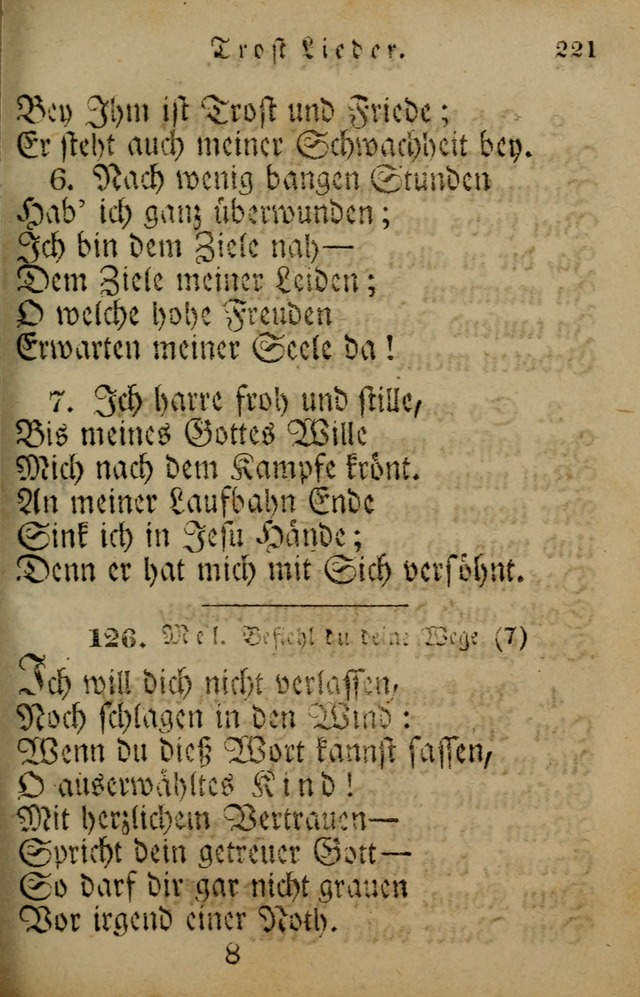 Trost Lieder. 221
Bey Ihm ist Trost und Friede;
Er steht auch meiner Schwachheit bey.
6. Nach wenig bangen Stunden
Hab' ich ganz überwunden;
Ich bin dem Ziele nah—
Dem Ziele meiner Leiden;
O welche hohe Freuden
Erwarten meiner Seele da!
7. Ich harre froh und stille,
Bis meines Gottes Wille
Mich nach dem Kampfe krönt.
An meiner Laufbahn Ende
Sink ich in Jesu Hände;
Denn er hat mich mit Sich versöhnt.
126. Mel. Befiehl du deine Wege (7)
Ich will dich nicht verlassen,
Noch schlagen in den Wind:
Wenn du dieß Wort kannst fassen,
O auserwähltes Kind!
Mit herzlichem Vertrauen—
Spricht dein getreuer Gott—
So darf dir gar nicht grauen
Vor irgend einer Noth.
8